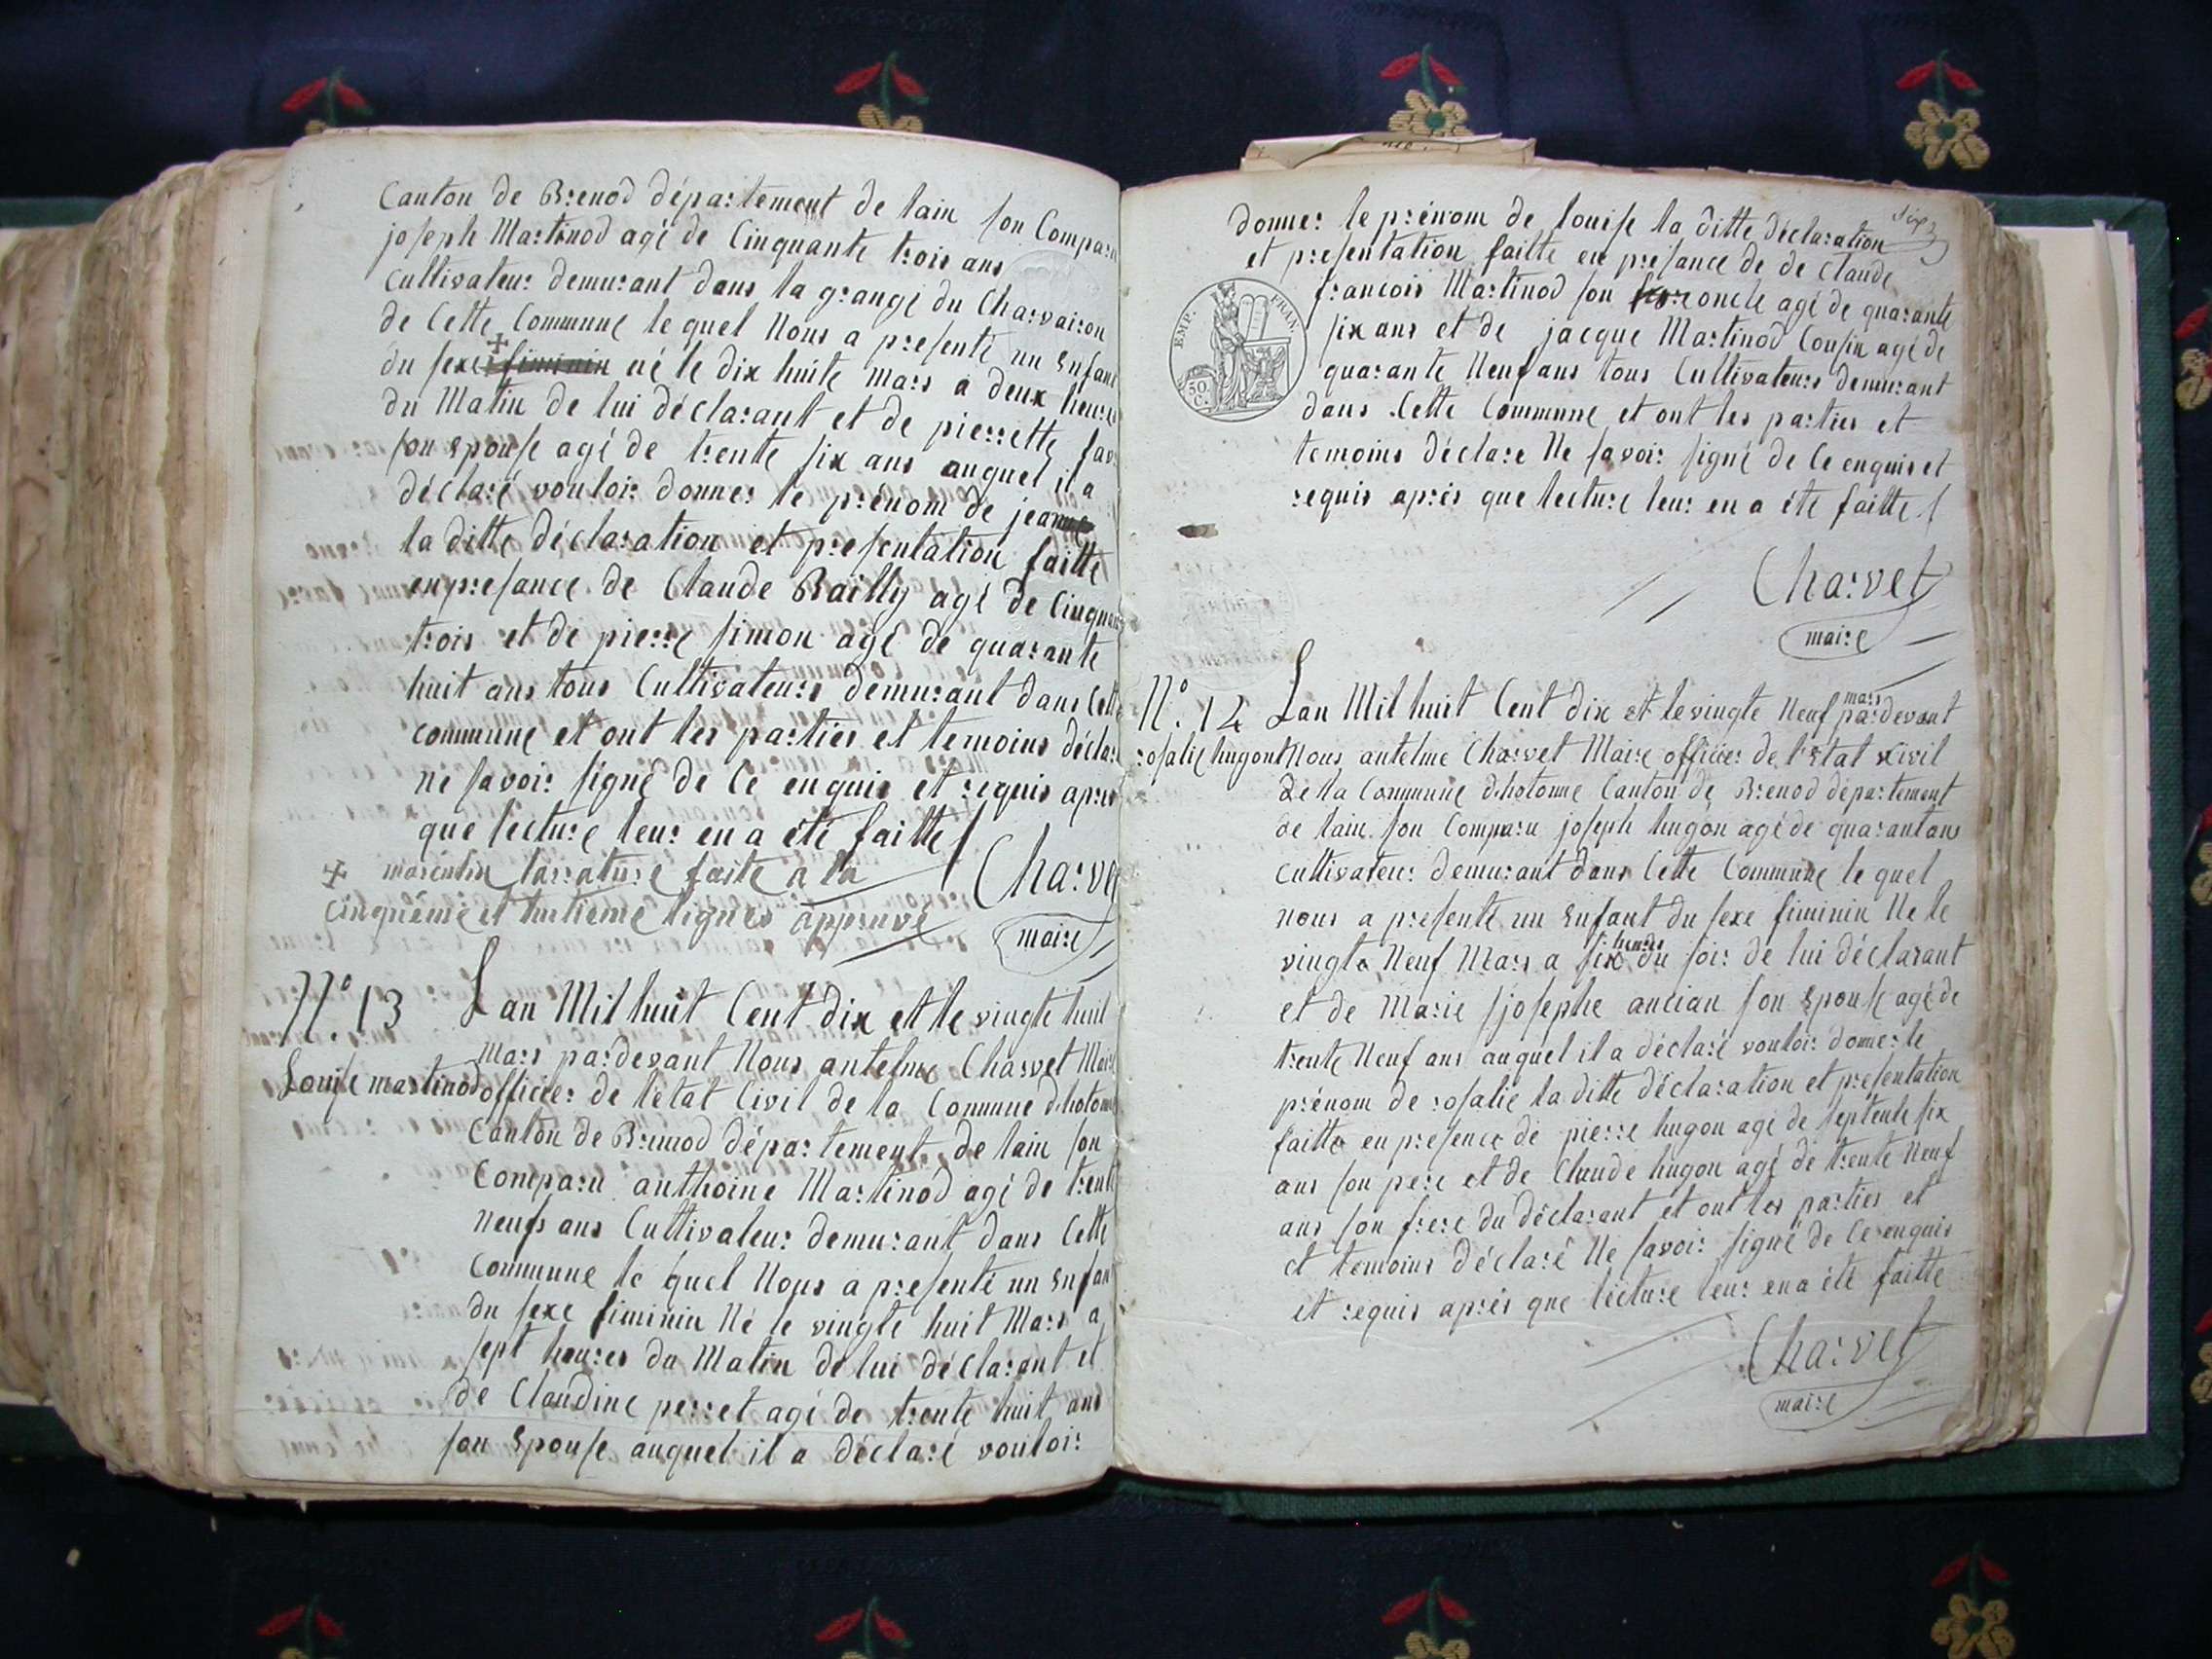 Canton de Brenod département de lain son Comparu
joseph Martinod agé de Cinquante trois ans
Cultivateur demurant dans la grange du Charvairon
de Cette Commune le quel Nous a presenté un Enfant
du sexe + fiminin né le dix huite mars a deux heures
du Matin de lui déclarant et de pierrette
son Epouse agé de trente six ans auquel il a
déclaré vouloir donner le prénom de jeanne
la ditte déclaration et presentation faitte
en presance de Claude Bailly agé de Cinquante
trois et de pierre simon agé de quarante
huit ans tous Cultivateurs demurant dans Cette
commune et ont les parties et temoins déclaré
ne savoir signé de Ce enquis et requis apres
que lecture leur en a été faitte
+ masculin larrature faite a la
cinquième et huitieme lignes appruvé
Charvet
maire
N.° 13
Louise martinod
Lan Mil huit Cent dix et le vingte huit
Mars pardevant Nous antelme Charvet Maire
officier de l'etat Civil de la Commune dhotonne
Canton de Brenod département de lain son
Comparu anthoine Martinod agé de trente
neufs ans Cultivateur demurant dans Cette
Commune le quel Nous a presenté un Enfant
du sexe fiminin Né le vingte huit Mars a
sept heures du Matin de lui déclarant et
de Claudine perret agé de trente huit ans
son Epouse auquel il a déclaré vouloir
six
donner le prénom de louise la ditte déclaration
et presentation faitte en presance de de Claude
francois Martinod son oncle agé de quarante
six ans et de jacque Martinod Cousin agé de
quarante Neuf ans tous Cultivateurs demurant
dans Cette Commune et ont les parties et
temoins déclare Ne savoir signé de Ce enquis et
requis après que lecture leur en a été faitte
EMP. FRAN.
50 C.
Charvet
maire
N.° 14
rosalie hugon
Lan Mil huit Cent dix et le vingte Neuf mars pardevant
Nous antelme Charvet Maire officier de l'Etat Civil
de la Commune dhotonne Canton de Brenod département
de lain son Comparu joseph hugon agé de quarant ans
Cultivateur demurant dans Cette Commune le quel
nous a presenté un Enfant du sexe fiminin Ne le
vingte Neuf Mars a six heures du soir de lui déclarant
et de Marie josephe ancian son Epouse agé de
trente Neuf ans auquel il a déclaré vouloir donner le
prénom de rosalie la ditte déclaration et presentation
faitte en presence de pierre hugon agé de septente six
ans son pere et de Claude hugon agé de trente Neuf
ans son frere du déclarant et ont les parties et
et temoins déclaré Ne savoir signé de Ce enquis
et requis après que lecture leur en a été faitte
Charvet
maire